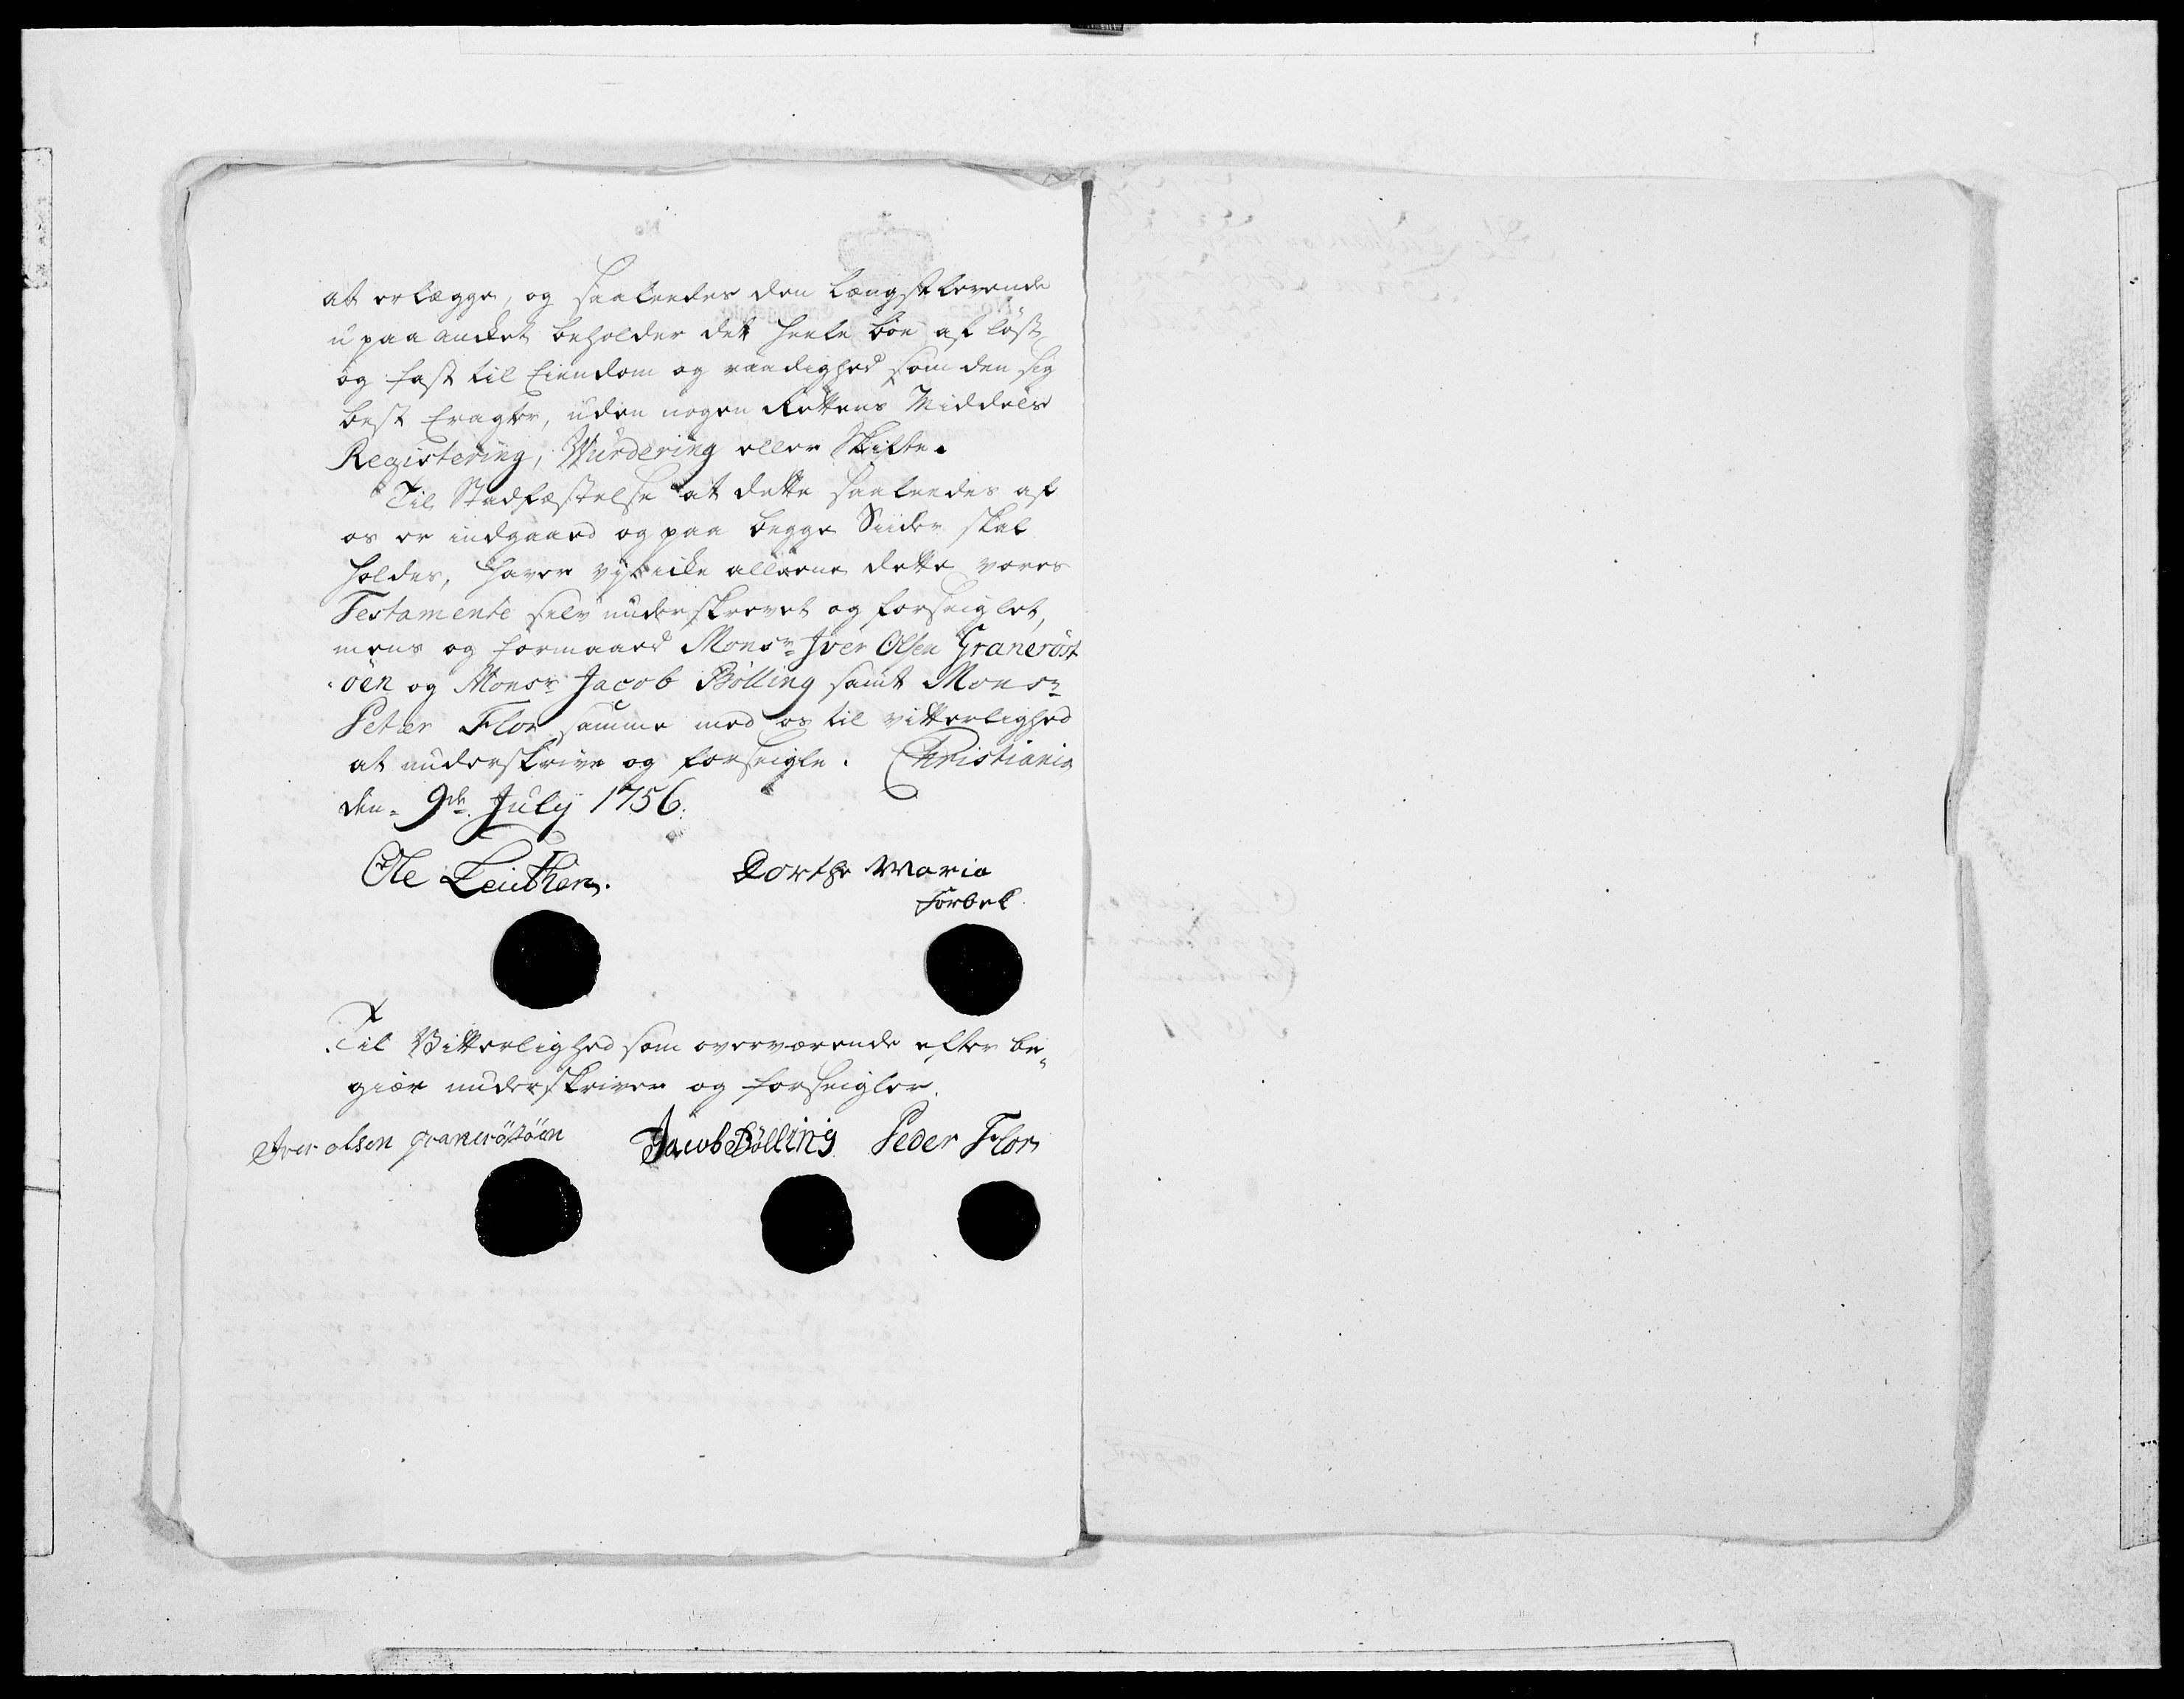 at erlægge, og saaleedes den Længstlevende
u paa ancket beholder det heele boe af løst
og fast til Eiendom og raadighed som den sig
best Eragter, uden nogen Rettens Middels
Registering, Vurdering eller Skifte.
Til Stadfæstelse at dette saaleedes af
os er indgaaed og paa begge Siider skal
holdes, haver vj ej icke alleene dette vores
Testamente selv underskrevet og forseiglet,
mens og formaaed Monsr Iver Olsen Granerøst
øen og Monsr Jacob Bölling samt Monsr
Peter Flor samme med os til vitterlighed
at underskrive og forseigle. Christiania
den 9de July 1756.
Ole Leuthen. Dorthe Maria
Forbel
Til Vitterlighed som overværende efter be-
giær underskriver og forseigler.
Iver olsen granerøstöen Jacob Bölling Peder Flor